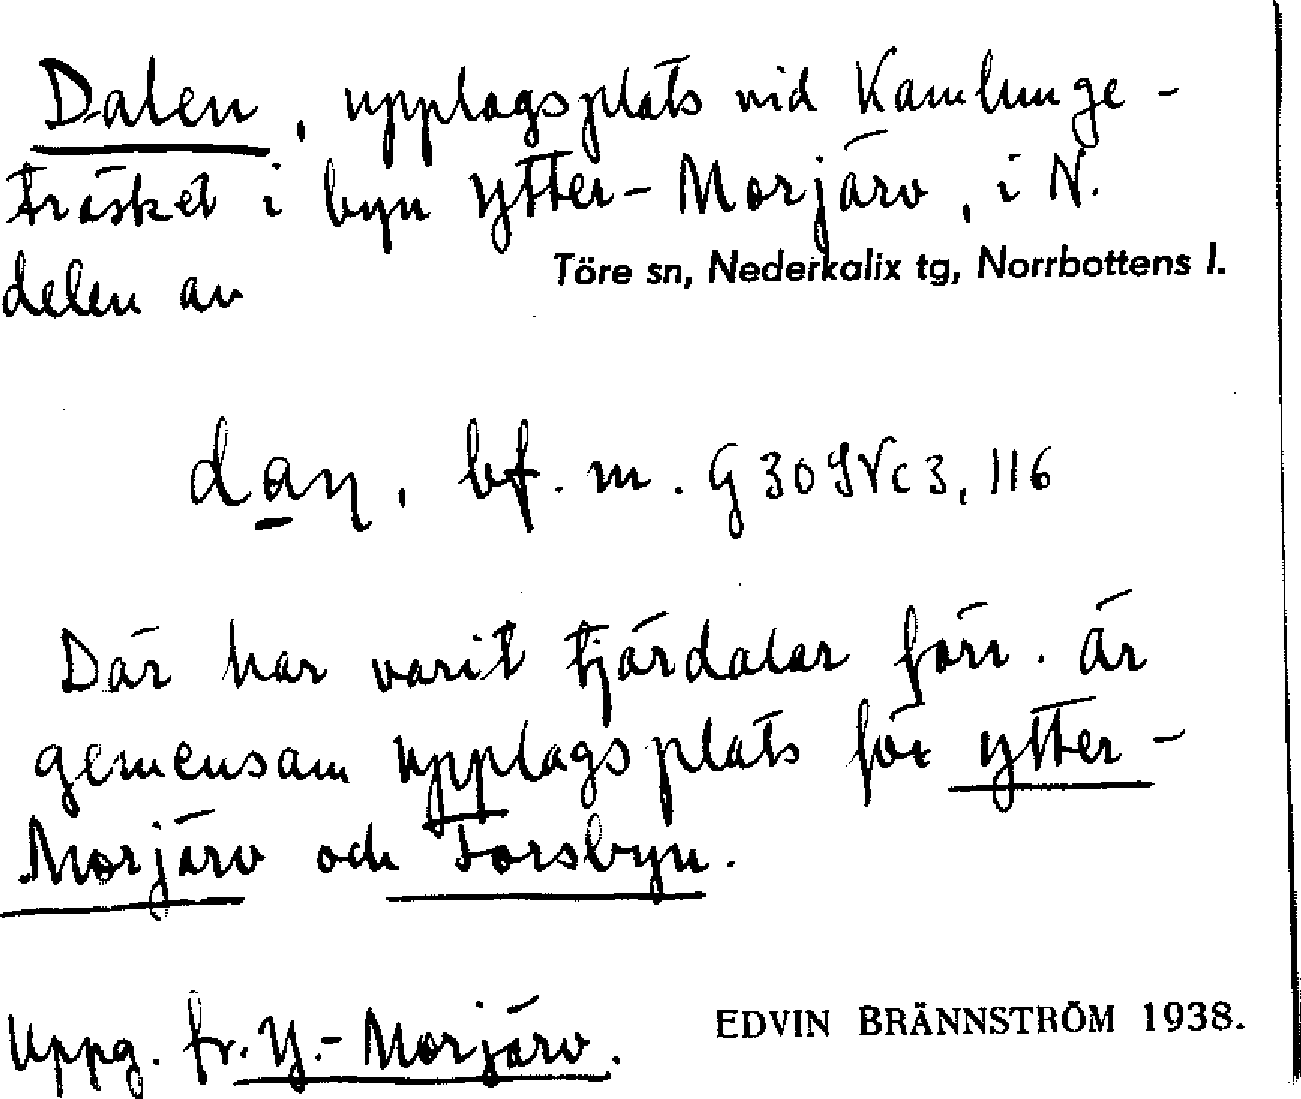 Dalen, upplagsplats vid Kamlunge-
träsket i byn Ytter-Morjärv, i N.
delen av Töre sn, Nederkalix tg, Norrbottens l.
daṉ, bf. m. G 30 9Vc3, 116
Där har varit tjärdalar förr. Är
gemensam upplagsplats för Ytter-
Morjärv och Forsbyn.
Uppg. fr. Y.-Morjärv. EDVIN BRÄNNSTRÖM 1938.